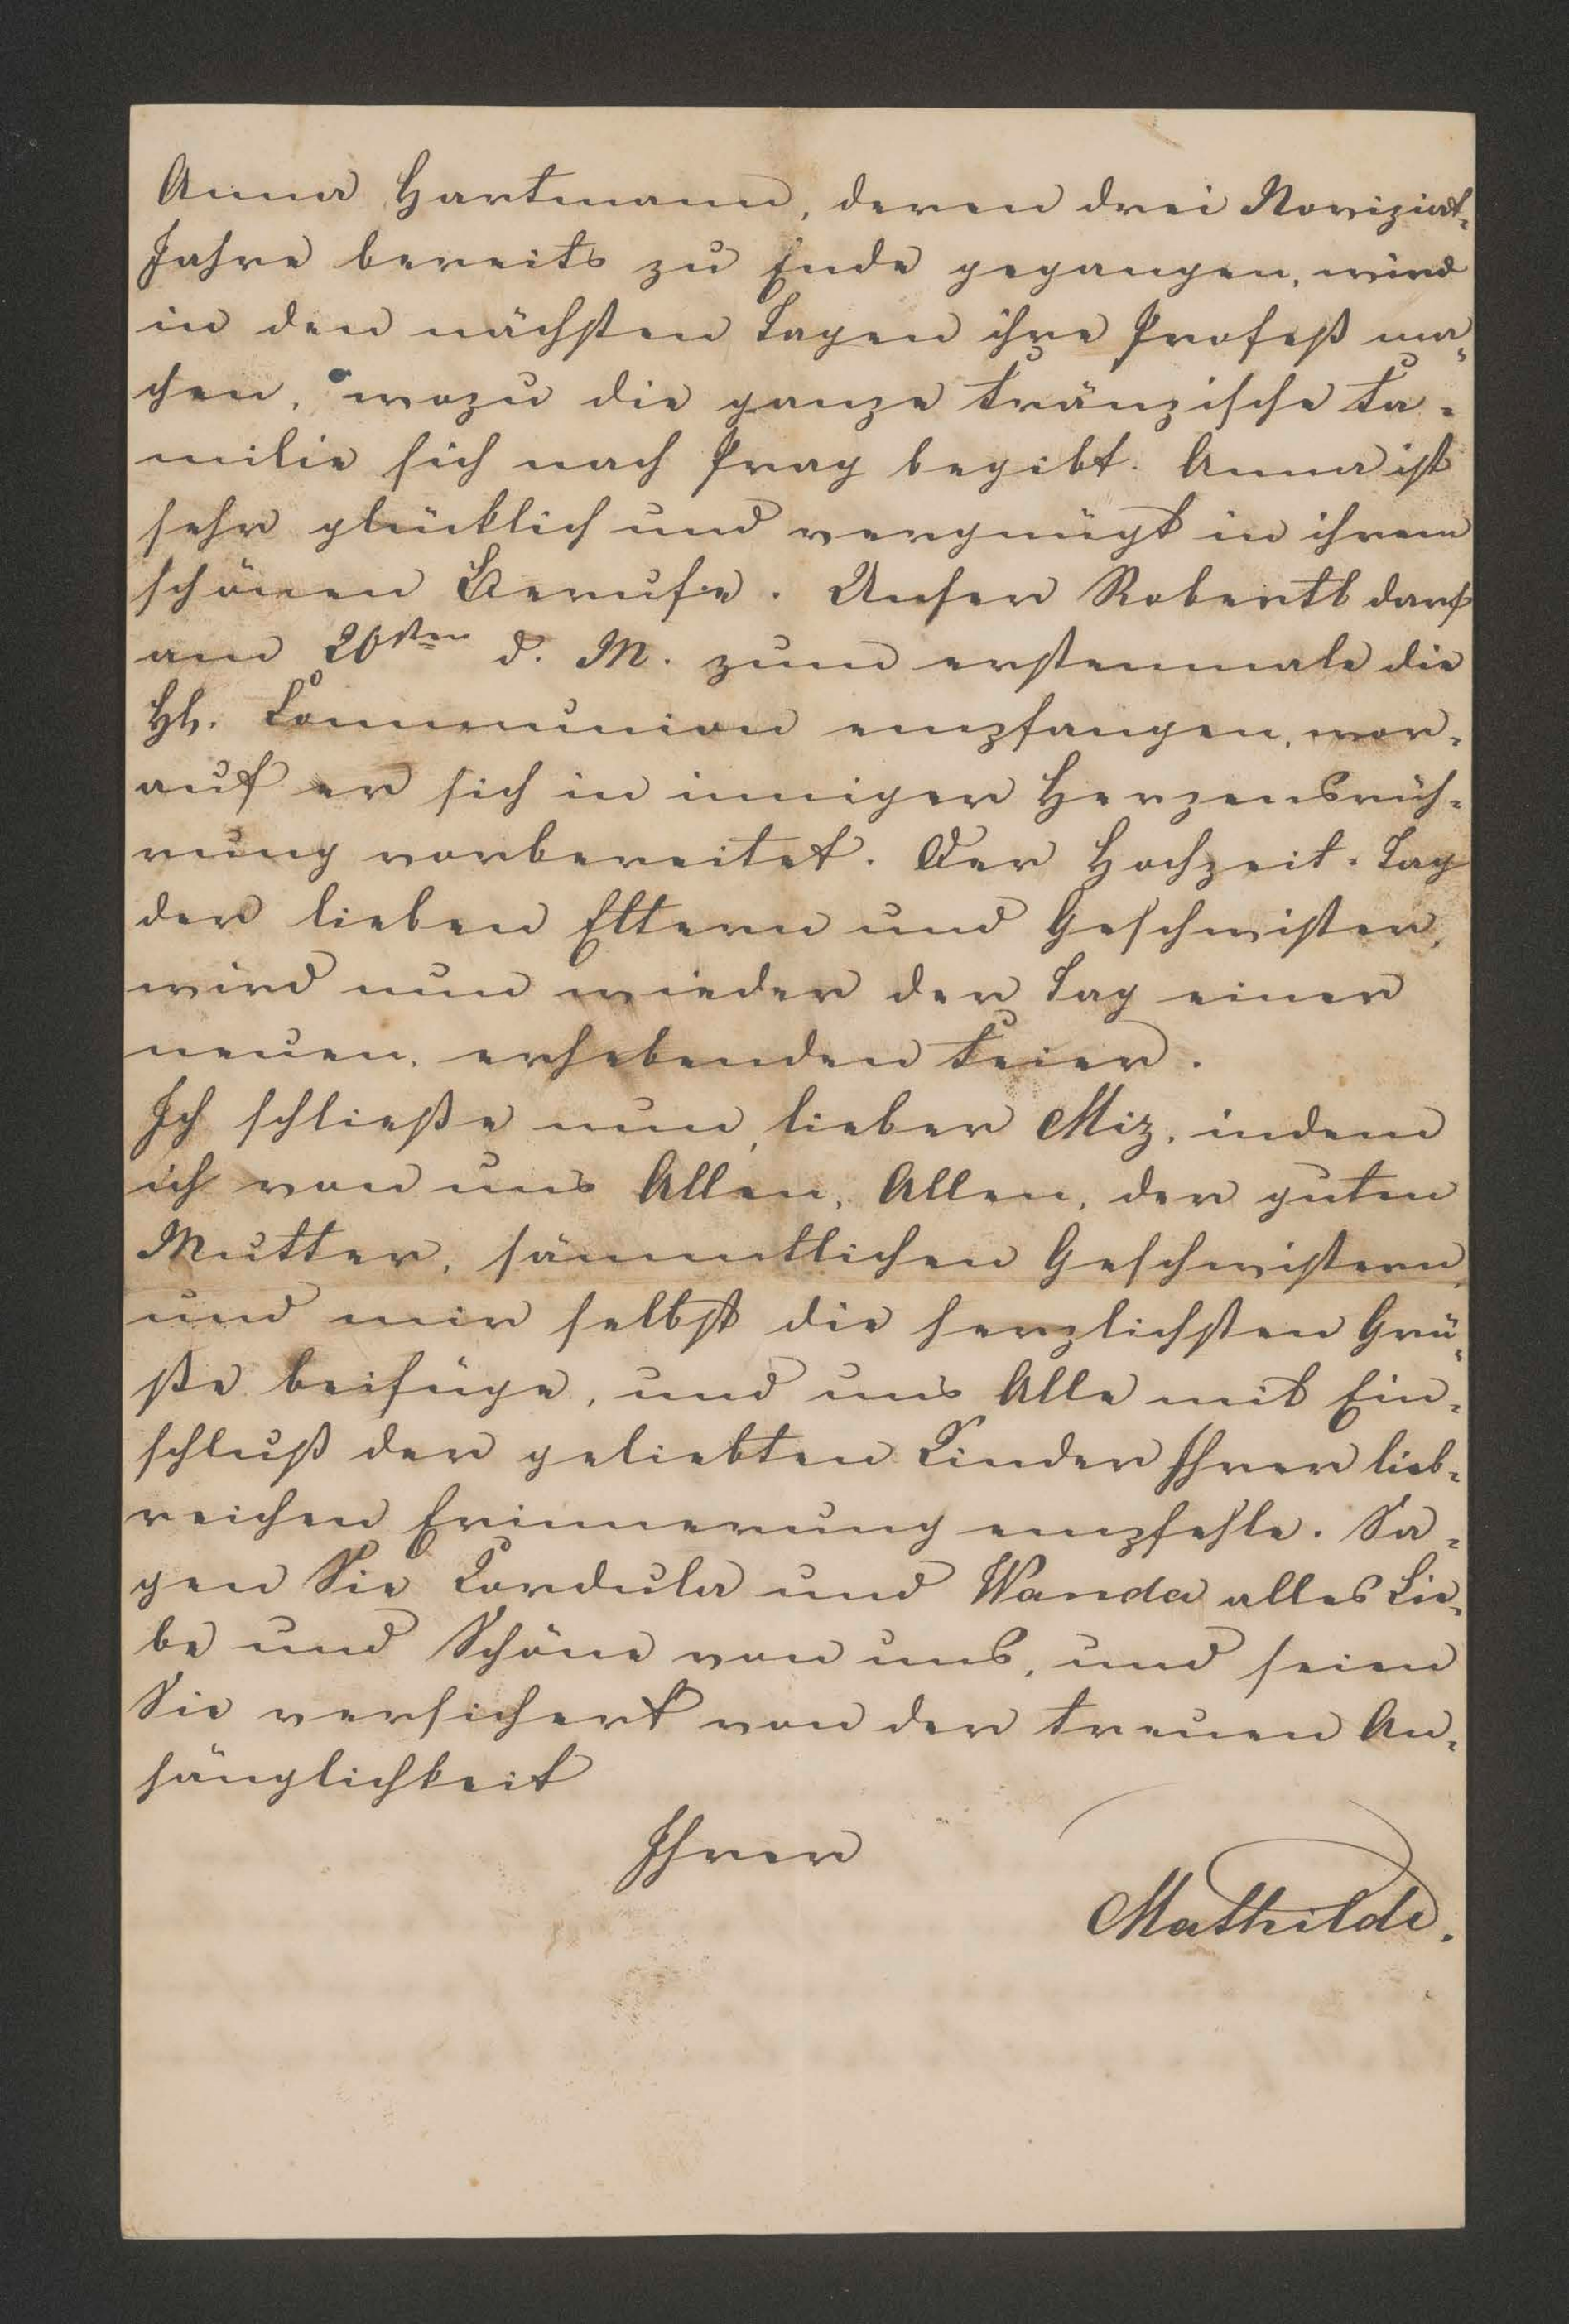 Anna Hartmann, deren drei Noviziat-
Jahre bereits zu Ende gegangen, wird
in den nächsten Tagen ihre Profeß ma-
chen, wozu die ganze Fränzische Fa-
milie sich nach Prag begibt. Anna ist
sehr glücklich und vergnügt in ihrem
schönen Berufe. Unser Robertl darf
am 20sten d. M. zum erstenmale die
Hl. Communion empfangen, wor-
auf er sich in inniger Herzensrüh-
rung vorbereitet. Der Hochzeit-Tag
der lieben Eltern und Geschwister,
wird nun wieder der Tag einer
neuen, erhebenden Feier.
Ich schließe nun, lieber Miz, indem
ich von uns Allen, Allen, der guten
Mutter, sämmtlichen Geschwistern,
und mir selbst die herzlichsten Grü-
ße beifüge, und uns Alle mit Ein-
schluß der geliebten Kinder Ihrer lieb-
reichen Erinnerung empfehle. Sa-
gen Sie Cordula und Wanda alles Lie-
be und Schöne von uns, und seien
Sie versichert von der treuen An-
hänglichkeit
Ihrer
Mathilde.